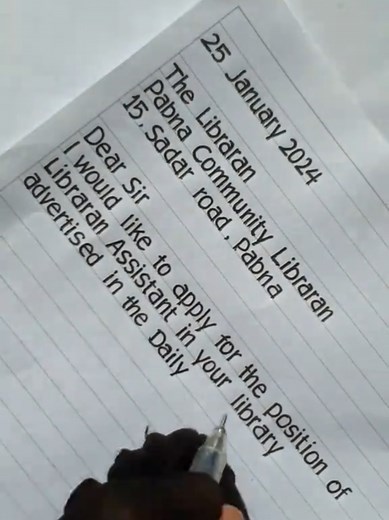 25 January 2024
The Libraran
Pabna Community Libraran
15, Sadar road, Pabna
Dear Sir
I would like to apply for the position of
Libraran Assistant in your library
advertised in the Daily